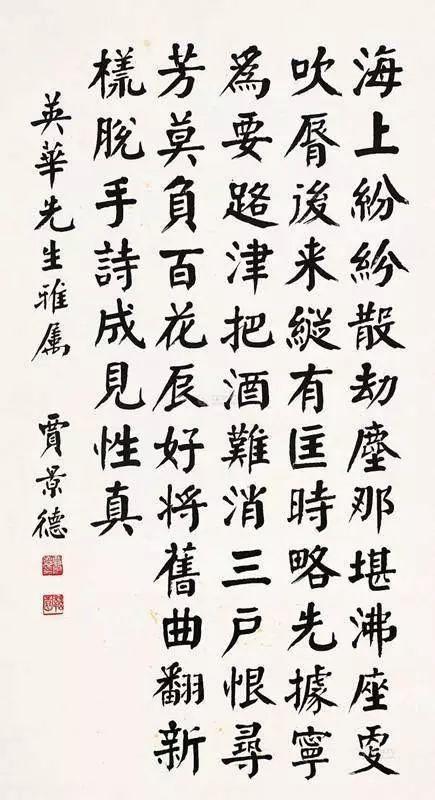 海上紛紛散劫塵那堪沸座㪅
吹脣後来縱有匡時略先據寧
為要路津把酒難消三戶恨尋
芳莫負百花辰好将舊曲翻新
樣脫手詩成見性真
英華先生雅属 賈景德